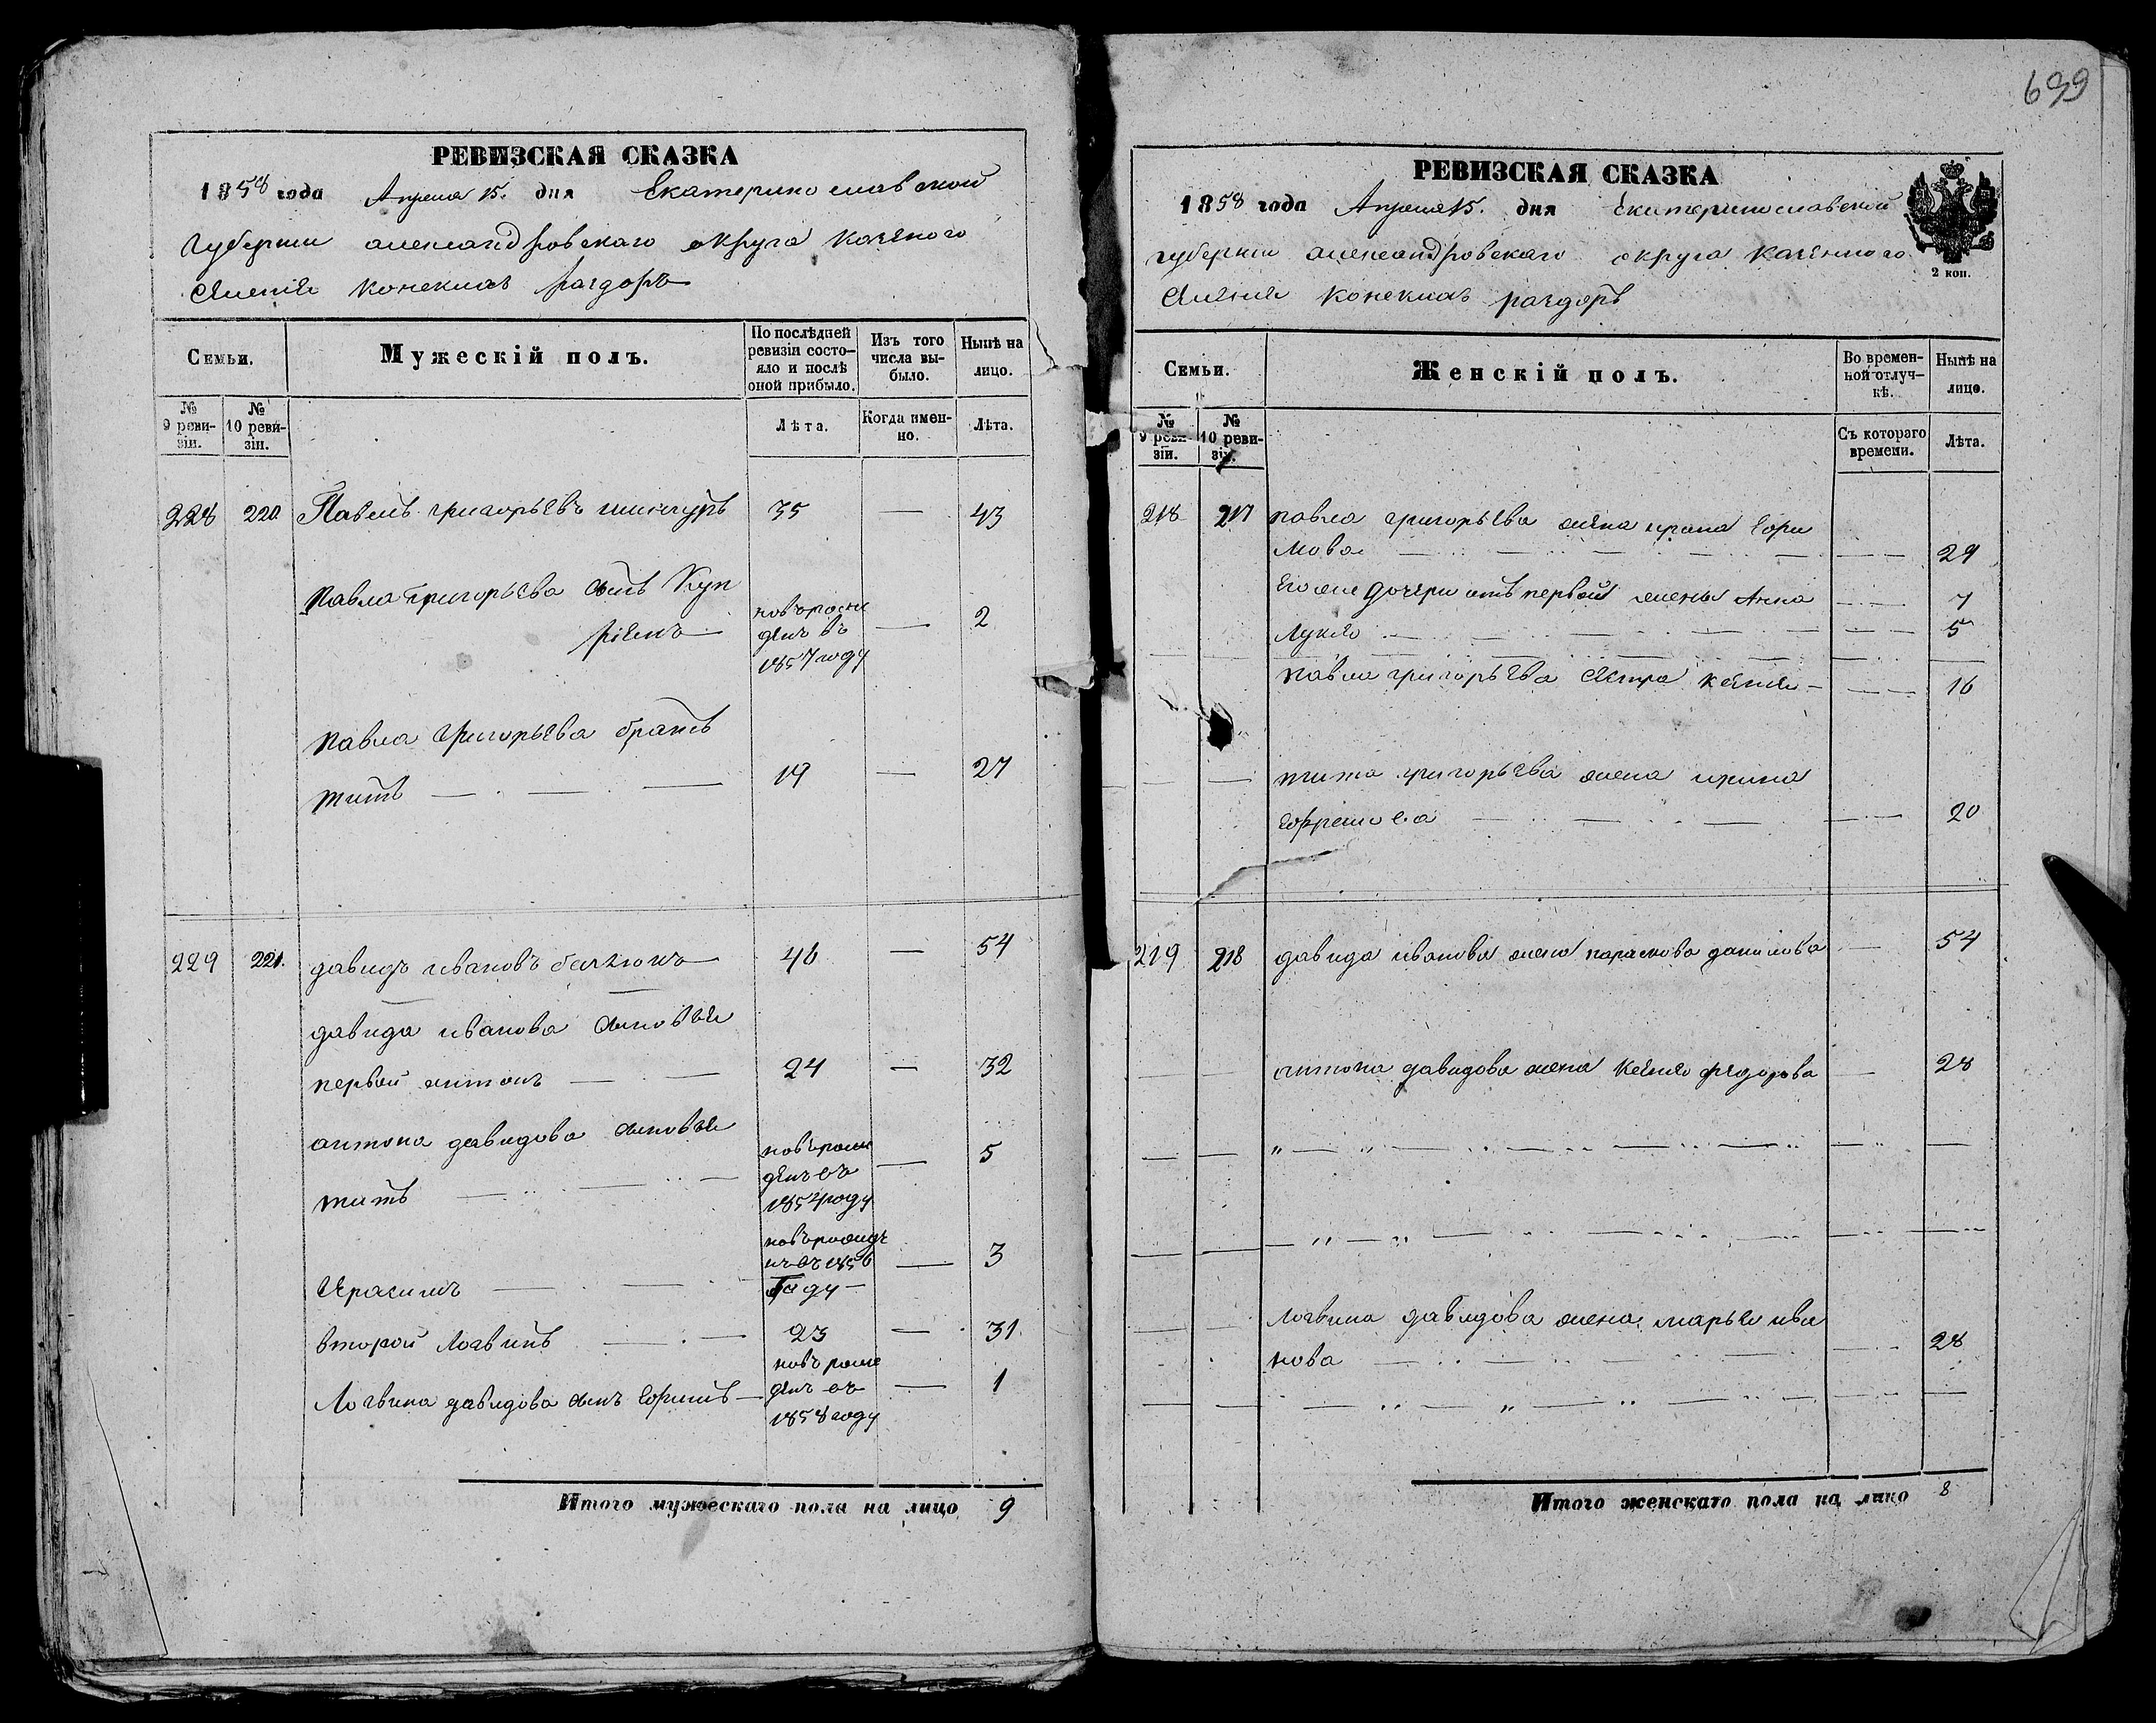 699
РЕВИЗСКАЯ СКАЗКА
1858 года Апреля 15. дня Екатеринославской
Губернии александровскаго округа казеного
Селенія конскихъ раздоръ
Семьи.
Мужескій полъ.
По послѣдней ревизіи состояло и послѣ оной прибыло.
Изъ того числа выбыло.
Нынѣ на лицо.
№ 9 ревизіи.
№ 10 ревизіи.
Лѣта.
Когда именно.
Лѣта.
228 220. Павелъ григорьевъ 35 — 43
Павла григорьева сынъ Куп
ріянъ
новорожденъ въ 1857 году — 2
павла григорьева братъ
титъ — 19 — 27
229 221. давидъ ивановъ 46 — 54
давида иванова сыновья
первой антонъ — 24 — 32
антона давидова сыновья
титъ — новорожденъ въ 1854 году — 5
Герасимъ — новорожденъ въ 1856 году — 3
второй Логвинъ — 23 — 31
Логвина давидова сынъ Ефимъ — новорожденъ въ 1858 году — 1
Итого мужескаго пола на лицо 9
РЕВИЗСКАЯ СКАЗКА
1858 года Апреля 15. дня Екатеринославской
губернии александровскаго округа казенного
Селенія конскихъ раздоръ
2 коп.
Семьи.
Женскій полъ.
Во временной отлучкѣ.
Нынѣ на лицо.
№ 9 ревизіи.
№ 10 ревизіи.
Съ котораго времени.
Лѣта.
218 217 павла григорьева жена
мова — 29
его же дочери отъ первой жены Анна — 7
Лукія — 5
павла григорьева сестра ксенія — 16
тита григорьева жена ирина
Ефремова — 20
219 218 давида иванова жена параскова данилова — 54
антона давидова жена ксенія федорова — 28
логвина давидова жена марья ива
нова — 28
Итого женскаго пола на лицо 8